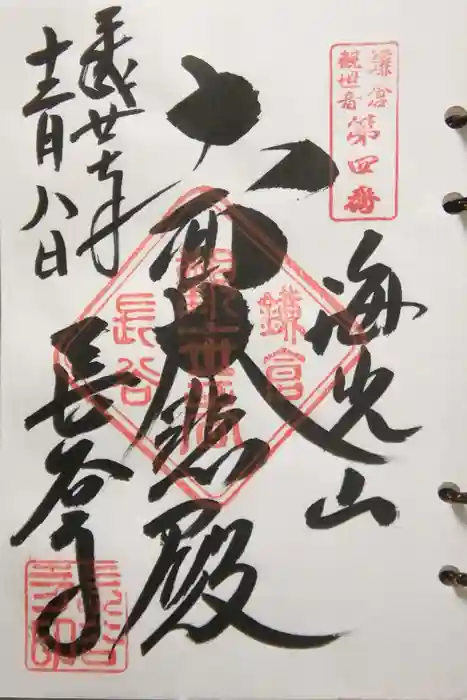 鎌倉
觀世音
第四番
海光山
十一面大悲殿
鎌倉
観世音
長谷
平成廿七年
十二月八日
長谷寺